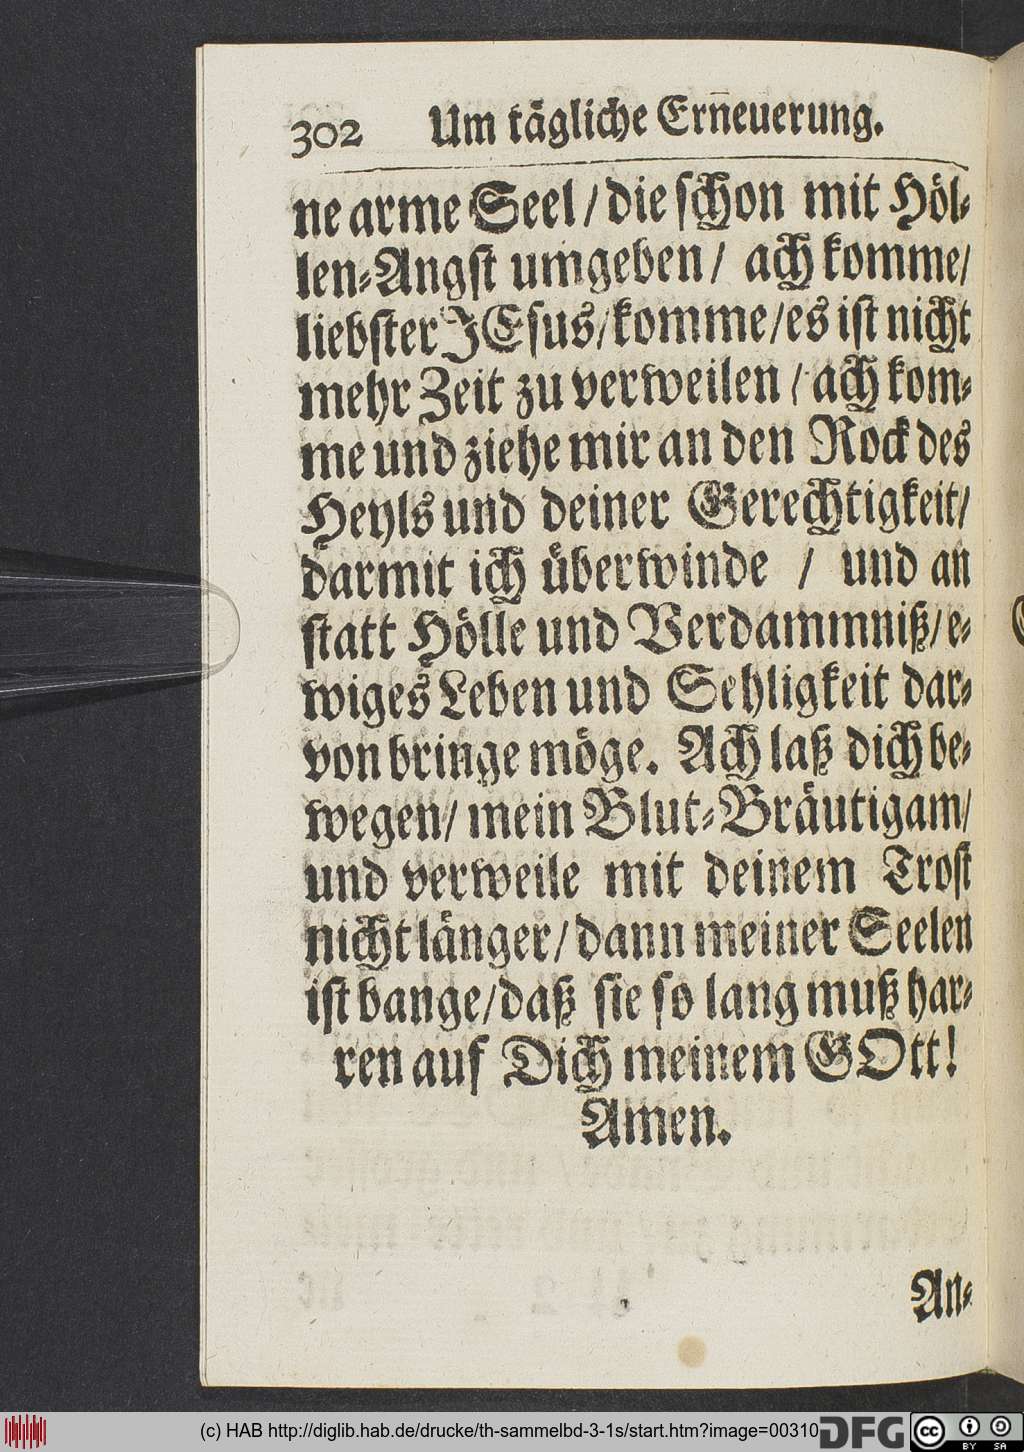 302 Um tägliche Ern̄euerung.
ne arme Seel / die schon mit Höl-
len-Angst umgeben / ach komme /
liebster JEsus / komme / es ist nicht
mehr Zeit zu verweilen / ach kom-
me und ziehe mir an den Rock des
Heyls und deiner Gerechtigkeit /
darmit ich überwinde / und an
statt Hölle und Verdammniß / e-
wiges Leben und Sehligkeit dar-
von bringe möge. Ach laß dich be-
wegen / mein Blut-Bräutigam /
und verweile mit deinem Trost
nicht länger / dann meiner Seelen
ist bange / daß sie so lang muß har-
ren auf Dich meinem GOtt!
Amen.
An-
(c) HAB http://diglib.hab.de/drucke/th-sammelbd-3-1s/start.htm?image=00310
DFG
cc BY SA